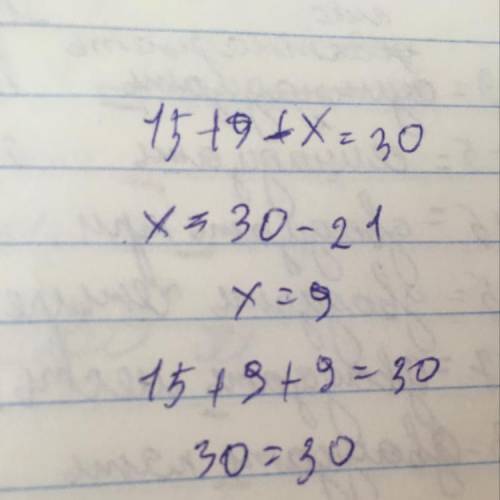 15+9+x=30
x=30-21
x=9
15+9+9=30
30=30